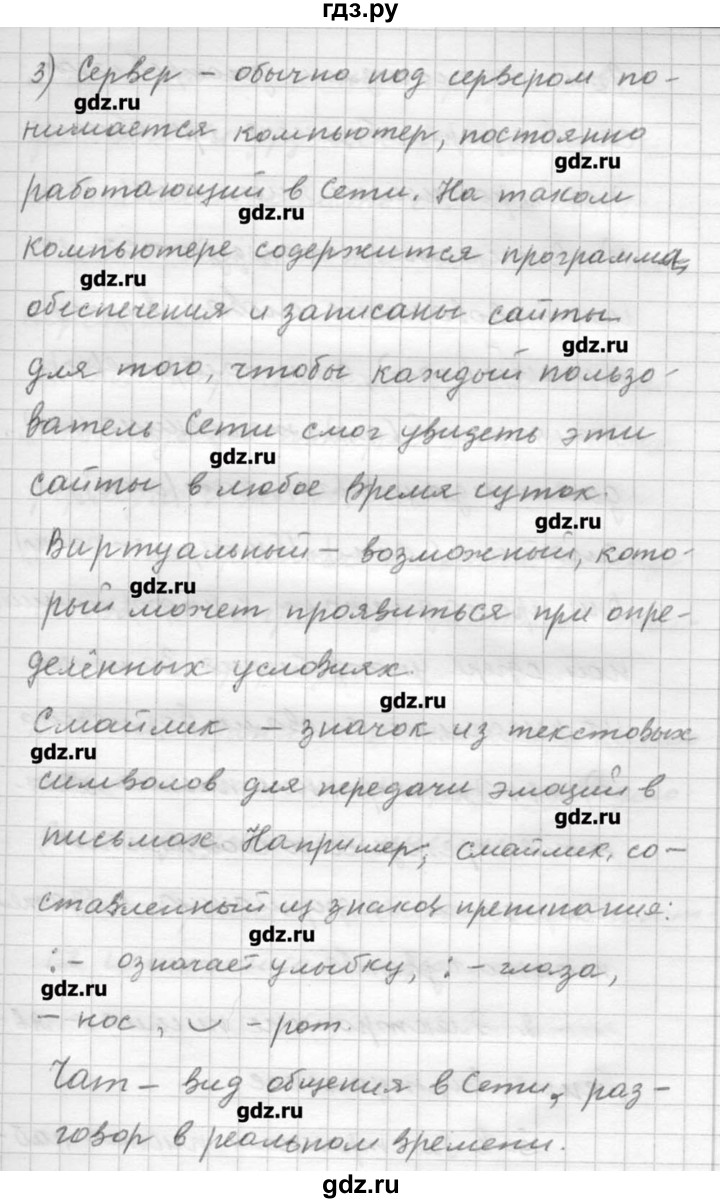 гдз.ру
3) Сервер – обычно под сервером по-
gdz.ru
нимается компьютер, постоянно
gdz.ru
работающий в Сети. На таком
gdz.ru
компьютере содержится программа,
gdz.ru
обеспечения и записаны сайты
gdz.ru
для того, чтобы каждый пользо-
ватель Сети смог увидеть эти
gdz.ru
сайты в любое время суток.
gdz.ru
Виртуальный – возможный, кото-
gdz.ru
рый может проявиться при опре-
делённых условиях.
gdz.ru
Смайлик – значок из текстовых
gdz.ru
символов для передачи эмоций в
gdz.ru
письмах Например, смайлик, со-
ставленный из знаков препинания:
gdz.ru
:– означает улыбку, : – глаза,
gdz.ru
– нос, ◡ – рот.
Чат – вид общения в Сети, раз-
gdz.ru
говор в реальном времени.
gdz.ru